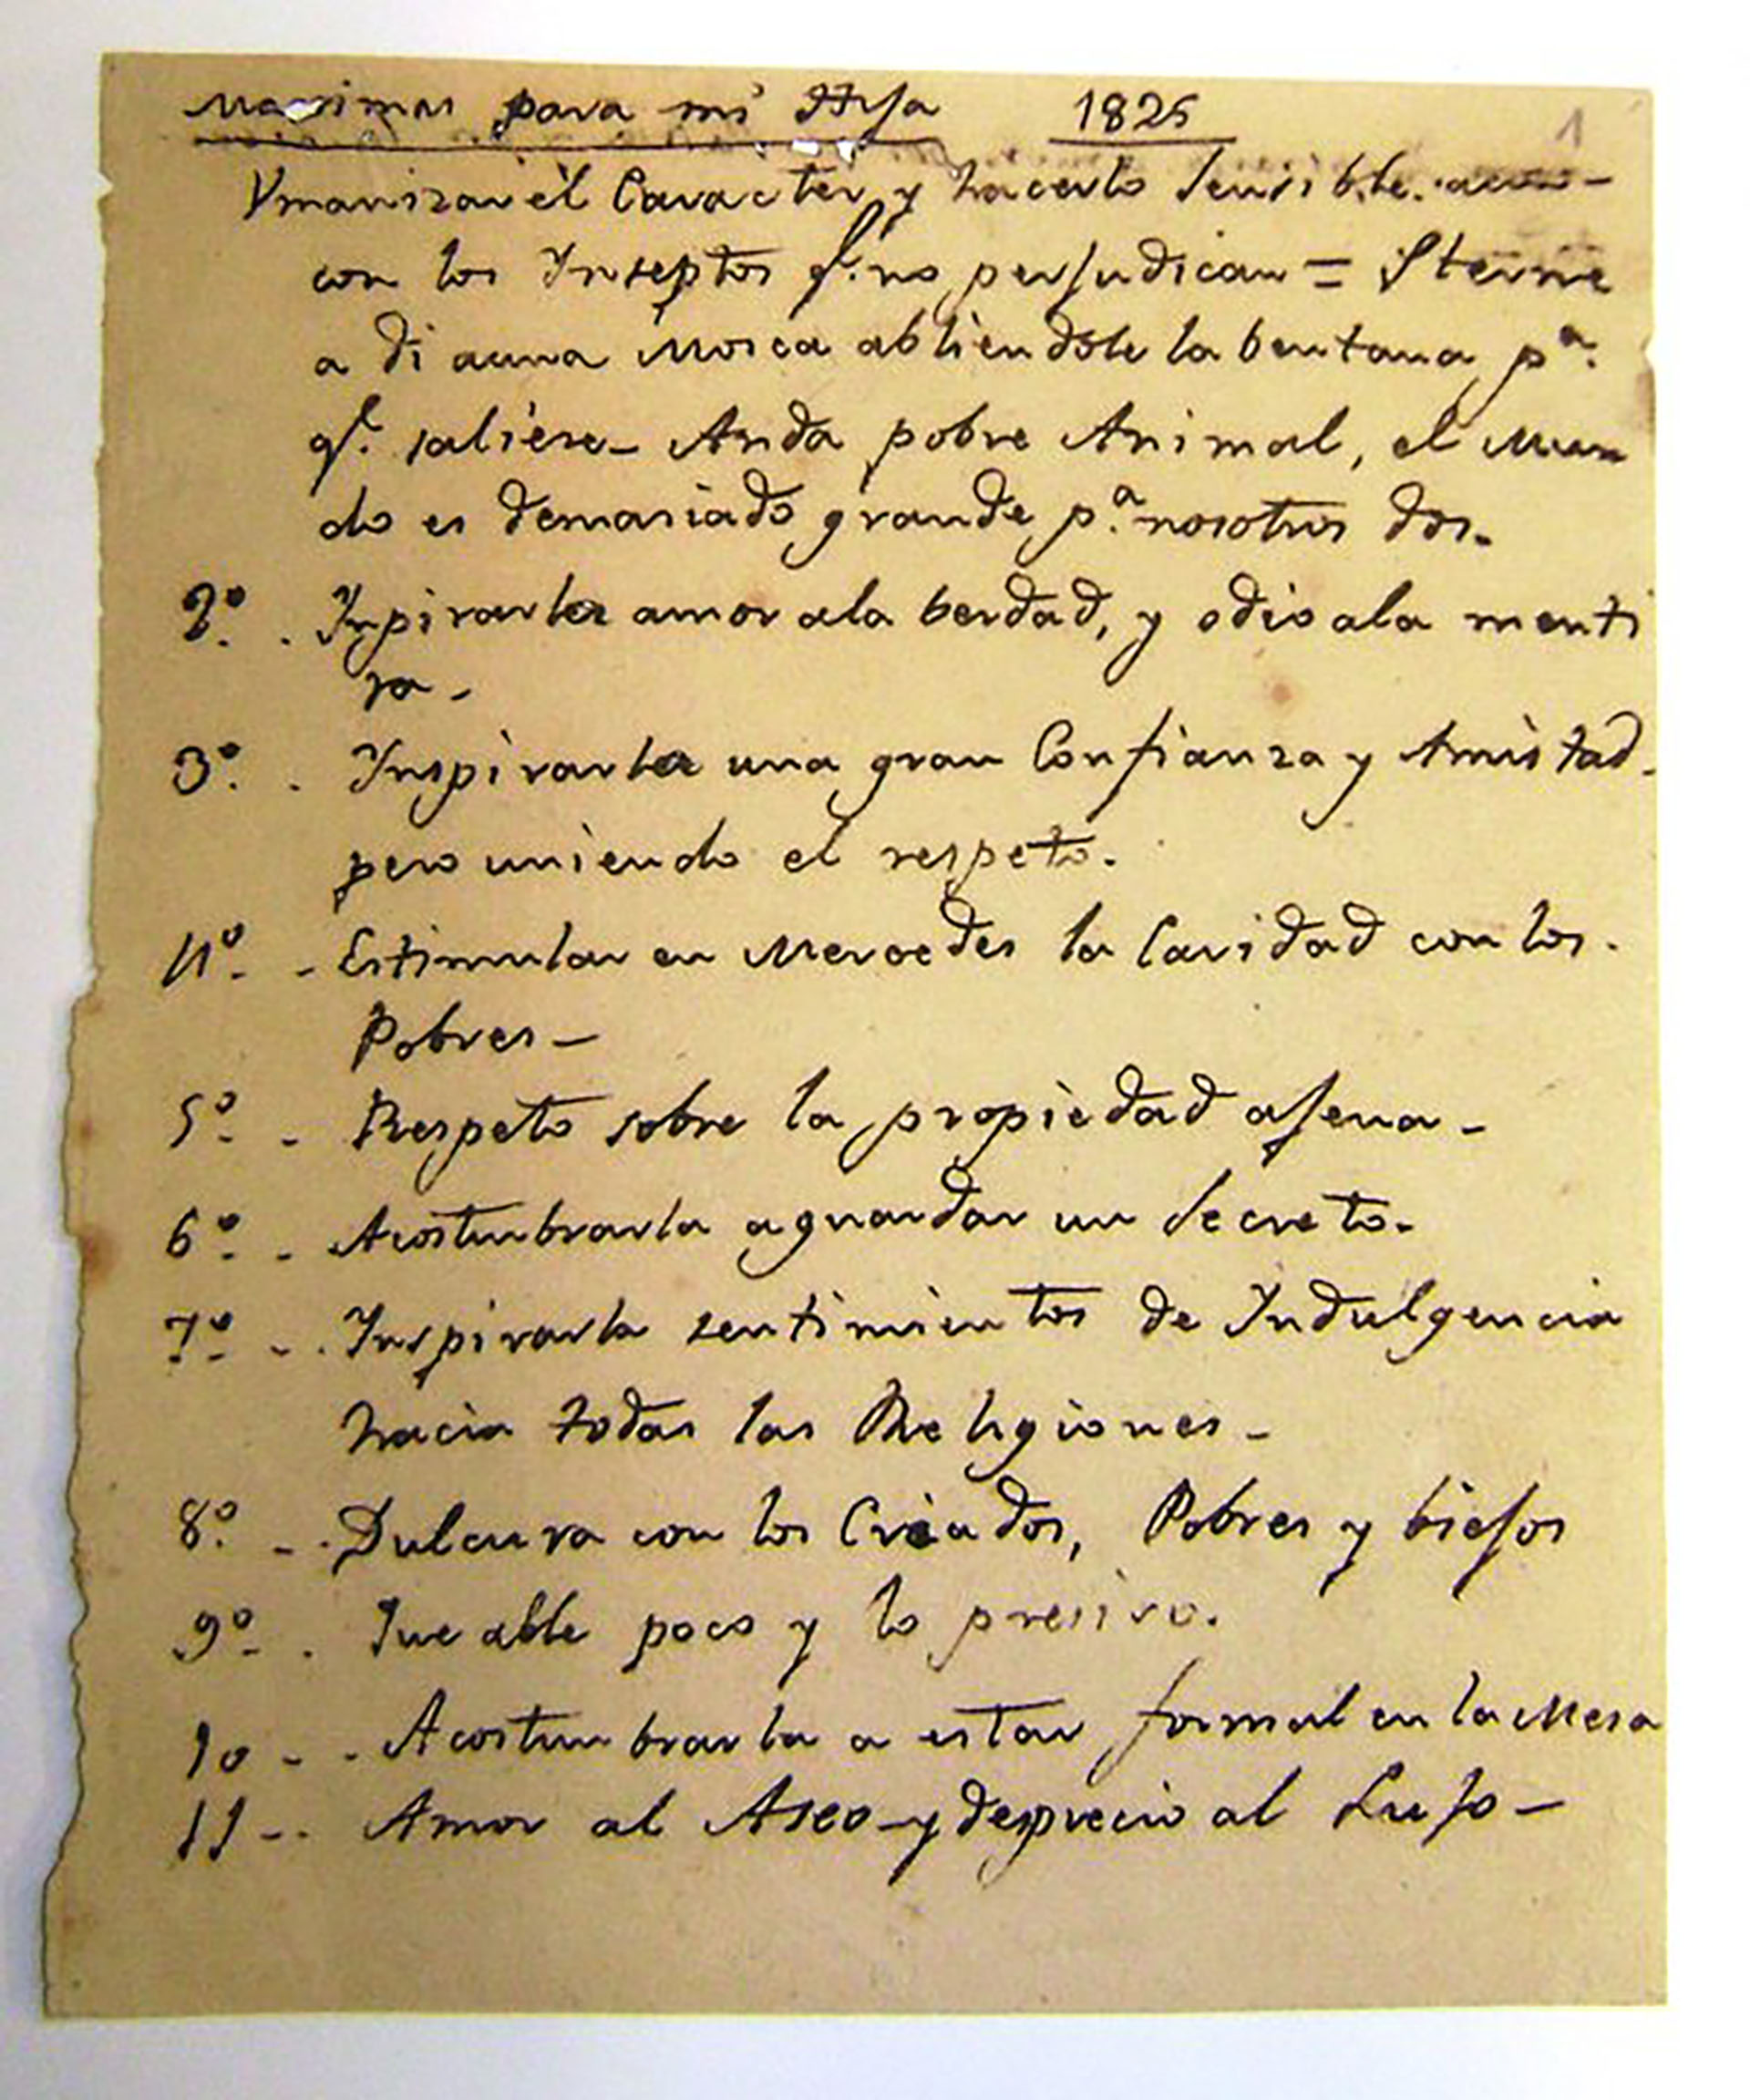 Maximas para mi Hija 1825
1
Vmanizar èl Caracter y hacerlo sensible. aun
con los Inseptos q.e no perjudican = Sterne
a di auna Mosca abliendole la bentana p.a
q.e saliese - Anda pobre Animal, el Mun
do es demasiado grande p.a nosotros dos.
2º. . Inpirarla amor ala berdad, y odio ala menti
ra -
3º. . Inspirarla una gran Confianza y Amistad
pero uniendo el respeto.
4º. - Estimular en Mercedes la Caridad con los
Pobres -
5º. - Respeto sobre la propiedad ajena -
6º. - Acostumbrarla aguardar un secreto.
7º. - . Inspirarla sentimientos de Indulgencia
hacia todas las Religiones -
8º. - . Dulcura con los Criados, Pobres y biejos
9º. . Que able poco y lo presiso.
10 - - Acostumbrarla a estar formal en la Mesa
11 - . Amor al Aseo - y desprecio al Lujo -